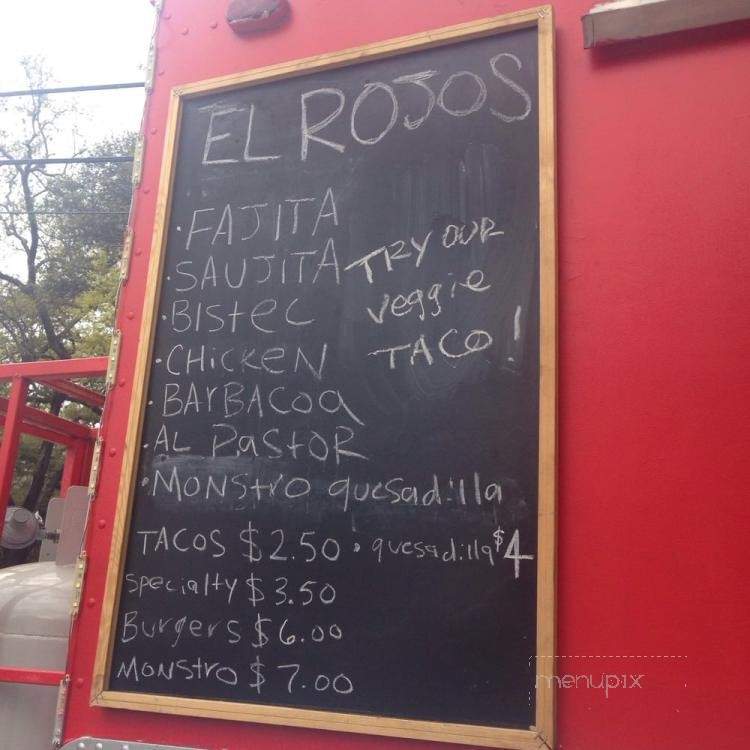 EL ROJOS
• FAJITA
• SAUJITA
• BISTEC
• CHICKEN
• BARBACOA
• AL PASTOR
• MONSTRO quesadilla
TRY OUR
veggie
TACO!
TACOS $2.50 • quesadilla $4
Specialty $3.50
Burgers $6.00
MONSTRO $7.00
menupix